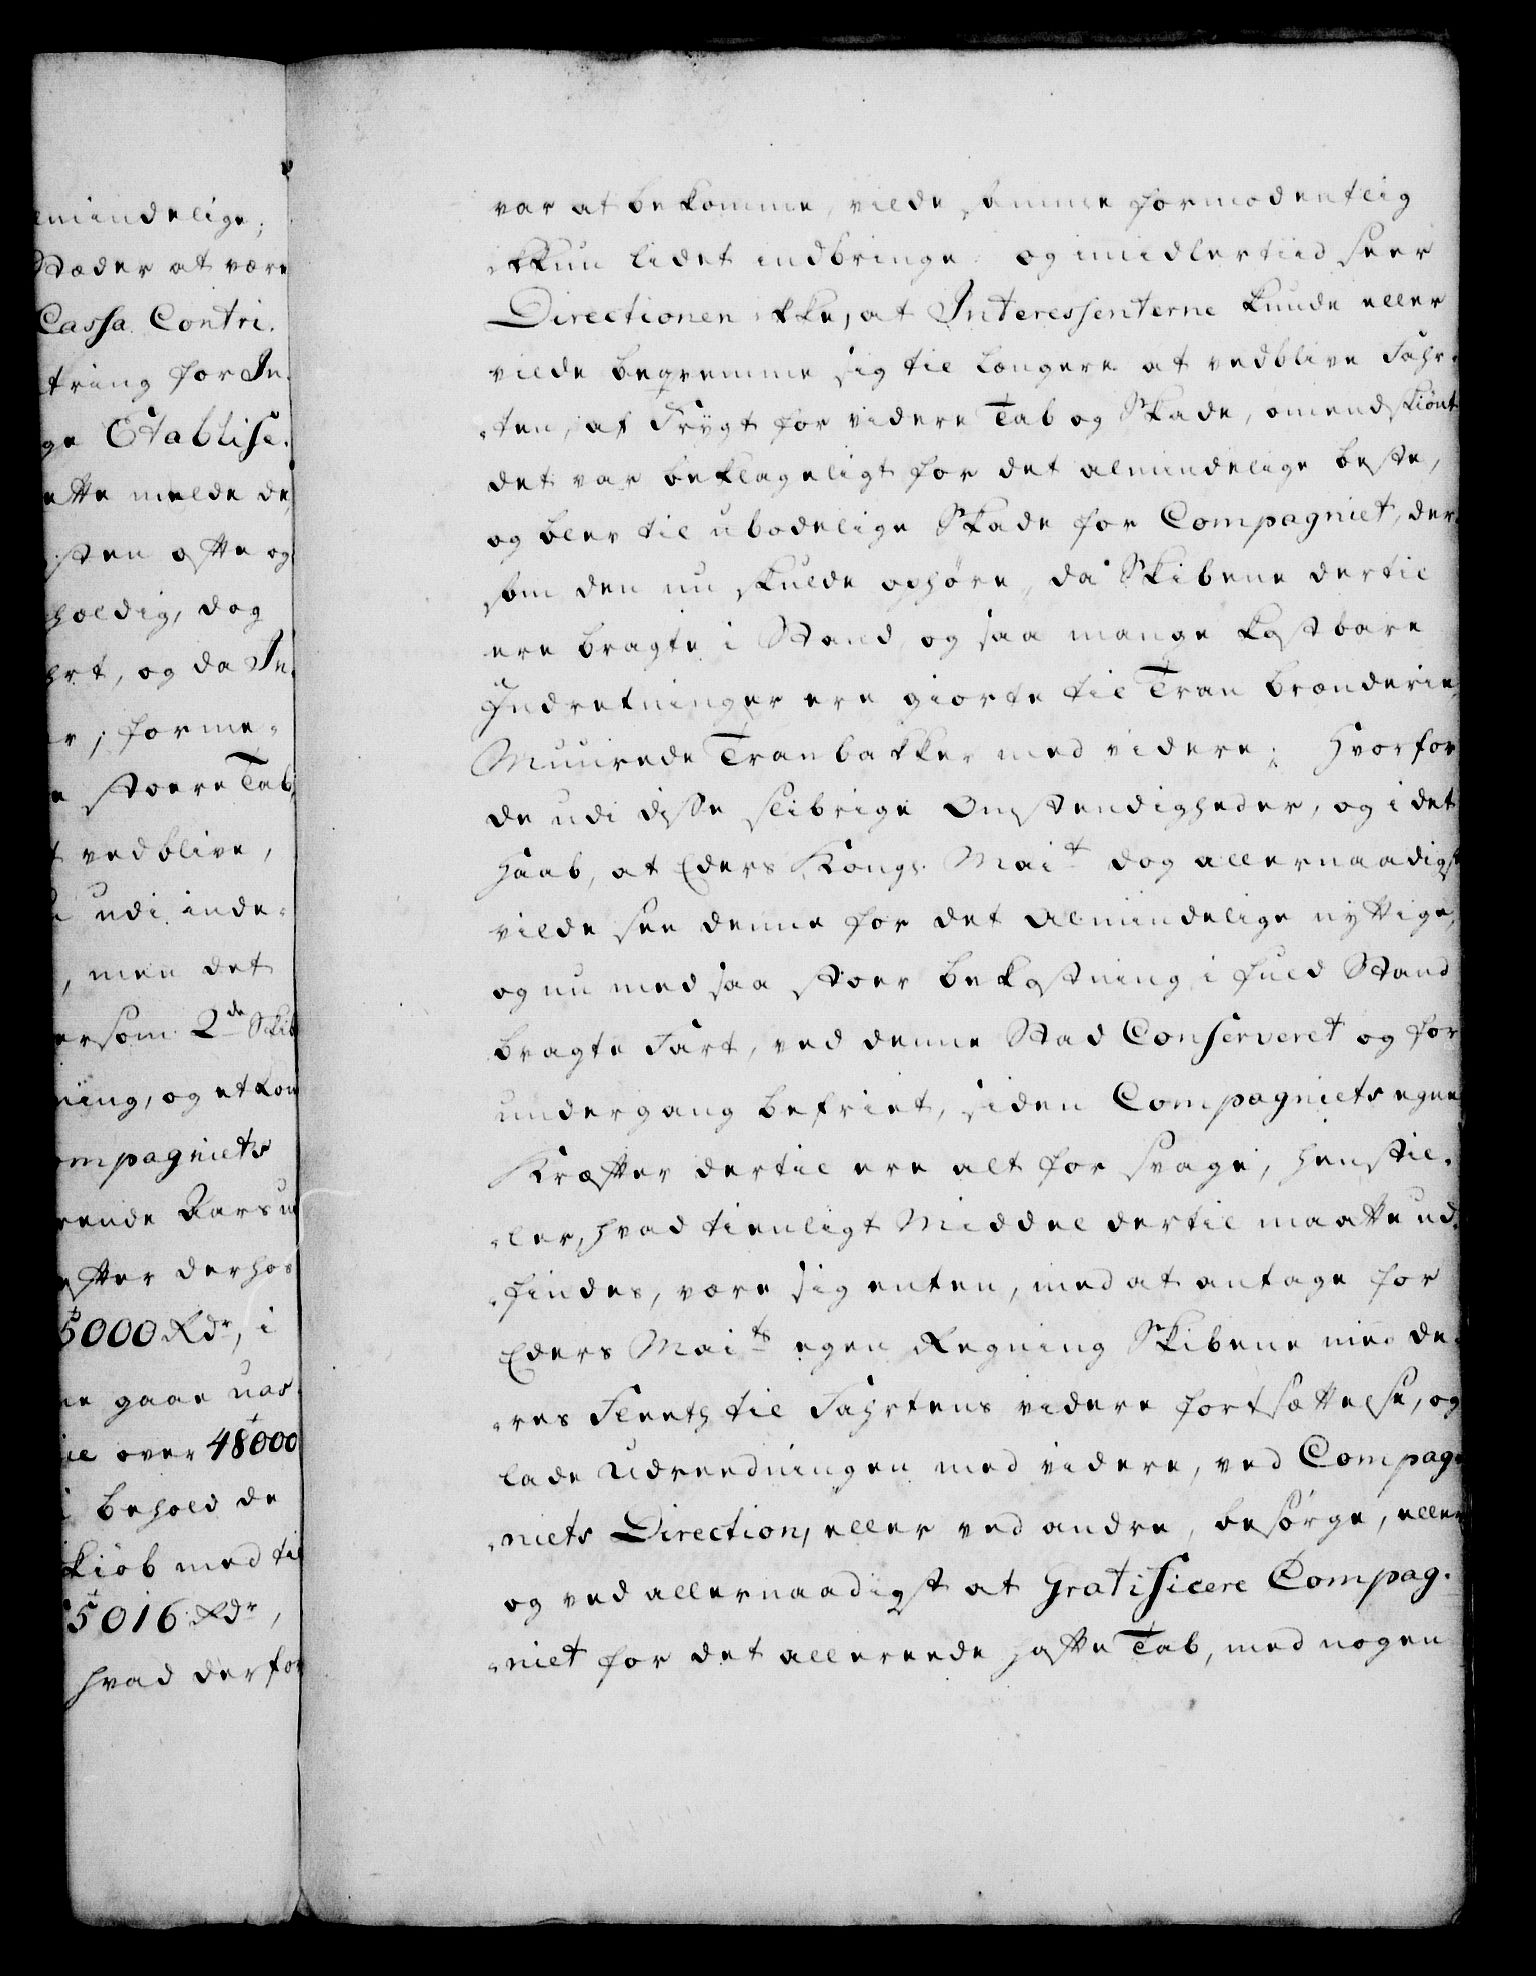 lmindelige;
Stæder at være
Cassa Contri.
tring for In.
ge Etablise.
ette melde de
sten ofte og
holdig, dog
hrt, og da In.
r; forme-
e stoere Tab,
t vedblive,
udi inde-
, men det
ersom 2de Skib
ning, og et kom
ompagniets
rende Aars ud
efter derhos
5000 Rdr, i
ne gaae uas
il over 48000
i behold de
kiøb med til
5016 Rdr,
hvad derfor
var at bekomme, vilde samme formodentlig
ikkun lidet indbringe og imidlertiid seer
Directionen ikke, at Interessenterne kunde eller
vilde beqvemme sig til længere at vedblive Fahr-
-ten, af Frygt for videre Tab og Skade, omendskiønt
det var beklageligt for det almindelige beste,
og blev til ubodelige Skade for Compagniet, der-
som den nu skulde ophøre, da Skibene dertil
ere bragte i Stand, og saa mange kostbare
Indretninger ere giorte til Tran brænderie
Muurede Tranbakker med videre; Hvorfor
de udi disse slibrige Omstendigheder, og i det
Haab, at Eders Kongl. Mait dog allernaadigst
vilde see denne for det Almindelige nyttige,
og nu med saa stoer bekostning i fuld Stand
bragte Fart, ved denne Stad Conserveret og for
undergang befriet, siden Compagniets egne
Kræfter dertil ere alt for svage, henstil-
-ler, hvad tienligt Middel dertil maatte ud-
-findes, være sig enten, med at antage for
Eders Maits egen Regning Skibene med de-
-res Fleeth til Fahrtens videre fortsættelse, og
lade Udreedningen med videre, ved Compag-
-niets Direction, eller ved andre, besørge, eller
og ved allernaadigst at Gratificere Compag-
-niet for det allereede hafte Tab, med nogen